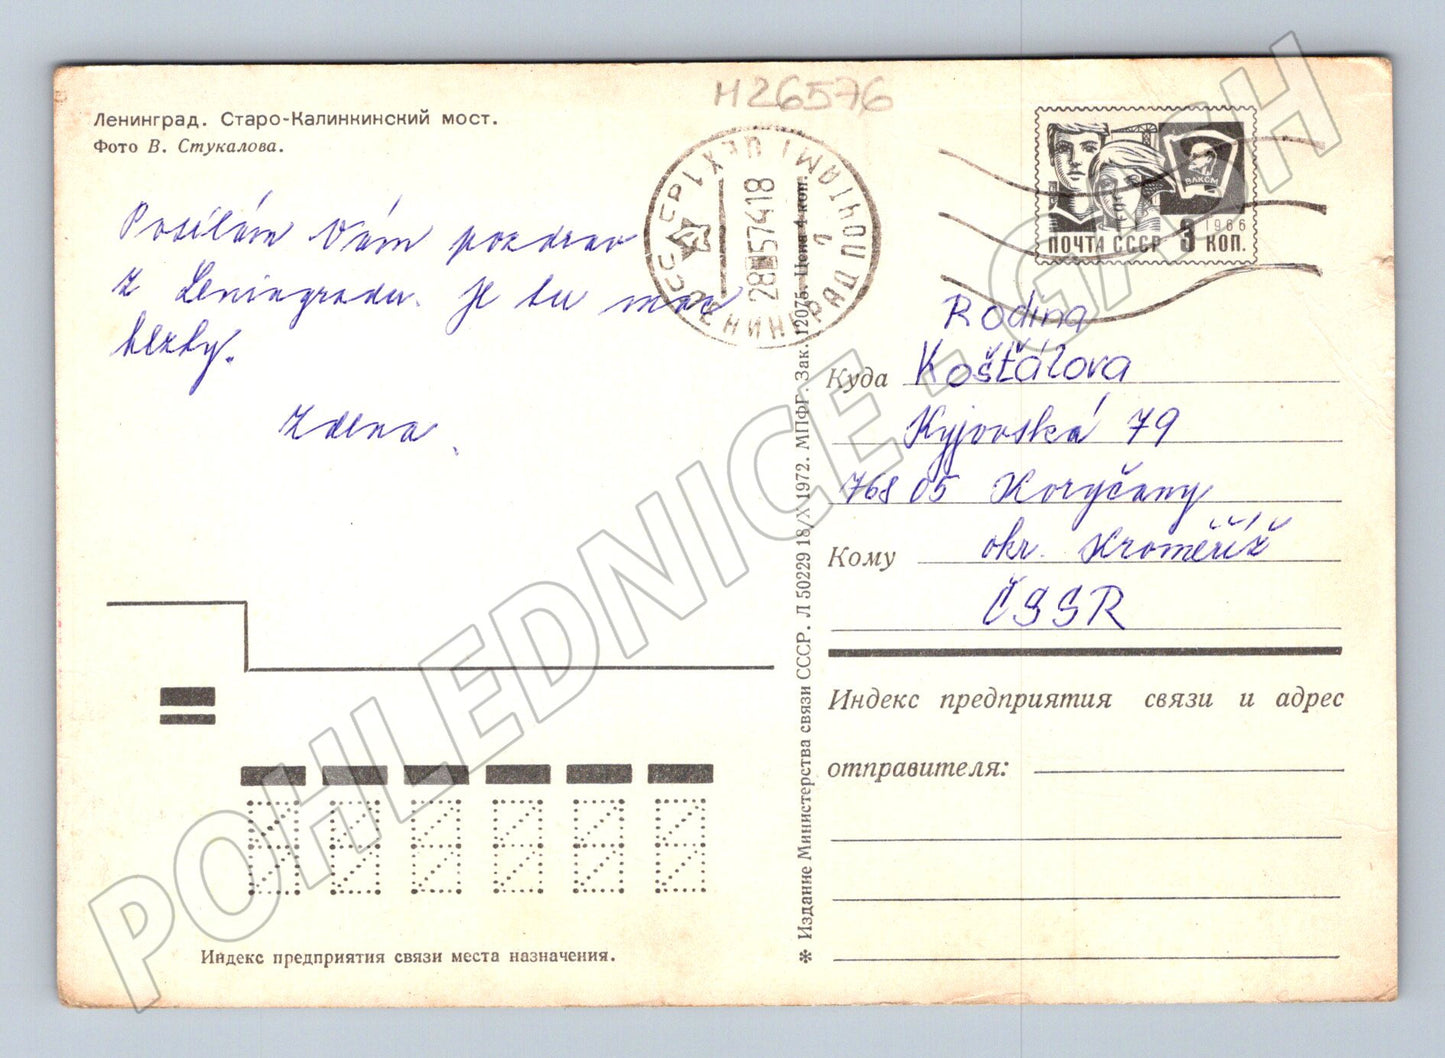 M26576
Ленинград. Старо-Калинкинский мост.
Фото В. Стукалова.
Posílám Vám pozdrav
z Leningradu. Je tu moc
hezky.
Zdena
ЛЕНИНГРАД ПОЧТАМТ
СССР
28 574 18
1
ВЛКСМ
1966
ПОЧТА СССР 3 КОП.
Rodina
Куда Košťálova
Kyjovská 79
768 05 Koryčany
Кому okr. Kroměříž
ČSSR
Индекс предприятия связи и адрес
отправителя:
Индекс предприятия связи места назначения.
* Издание Министерства связи СССР. Л 50229 18/X 1972. МПФГ. Зак. 12075. Цена 4 коп.
POHLEDNICE - GASH